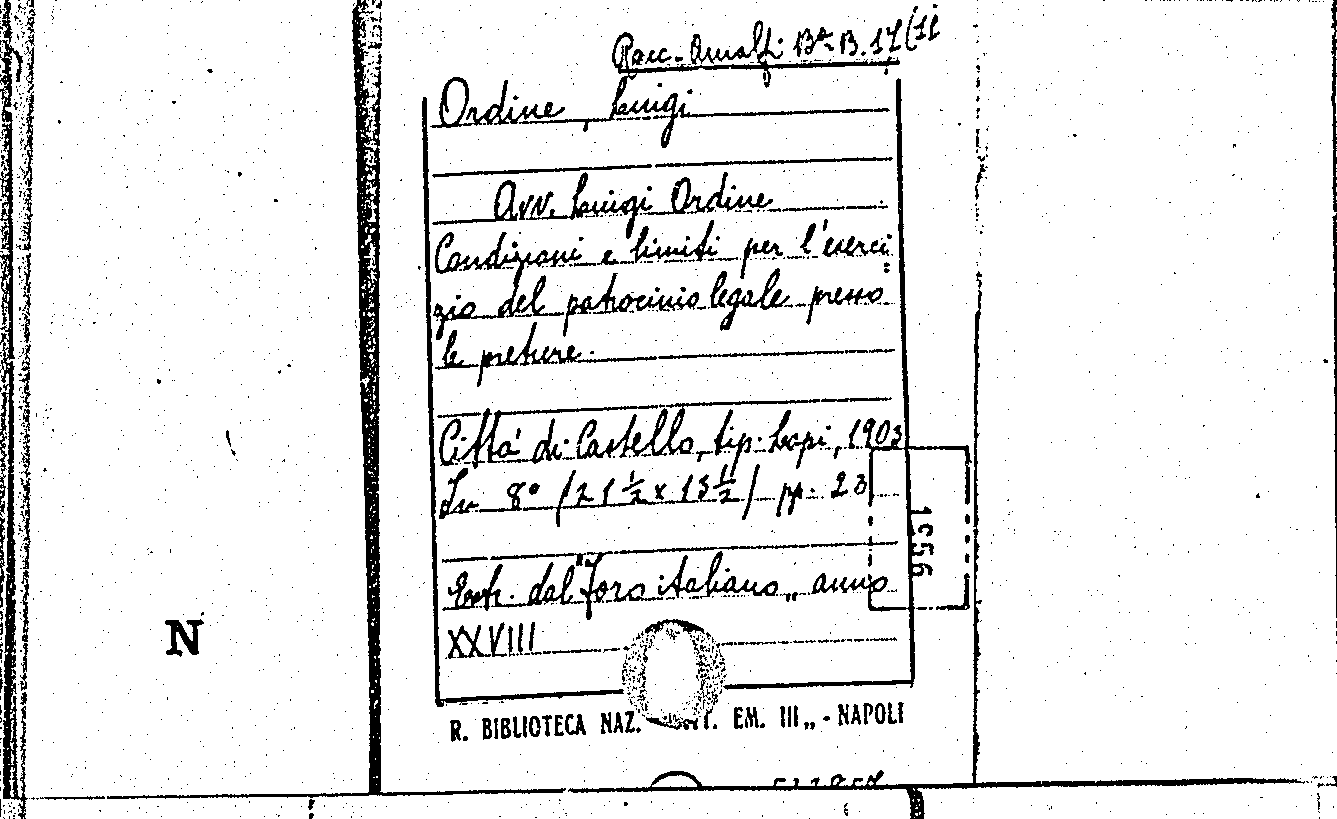 Racc. Amalfi Bª B. 17 (11
Ordine, Luigi
Avv. Luigi Ordine
Condizioni e limiti per l'eserci
zio del patrocinio legale presso
le preture.
Città di Castello, tip. Lapi, 1903
In 8° (21 ½ x 13 ½) pp. 23
1956
Estr. dal "Foro italiano„ anno
XXVIII
N
R. BIBLIOTECA NAZ. EM. III„ - NAPOLI